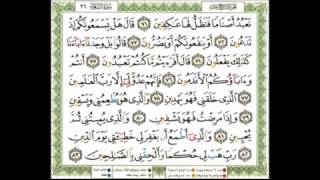 سُورَةُ الشُّعَرَاءِ ٢٦
نَعْبُدُ أَصْنَامًا فَنَظَلُّ لَهَا عَٰكِفِينَ ٧١ قَالَ هَلْ يَسْمَعُونَكُمْ إِذْ
تَدْعُونَ ٧٢ أَوْ يَنفَعُونَكُمْ أَوْ يَضُرُّونَ ٧٣ قَالُوا۟ بَلْ وَجَدْنَآ ءَابَآءَنَا
كَذَٰلِكَ يَفْعَلُونَ ٧٤ قَالَ أَفَرَءَيْتُم مَّا كُنتُمْ تَعْبُدُونَ ٧٥ أَنتُمْ
وَءَابَآؤُكُمُ ٱلْأَقْدَمُونَ ٧٦ فَإِنَّهُمْ عَدُوٌّ لِّىٓ إِلَّا رَبَّ ٱلْعَٰلَمِينَ
٧٧ ٱلَّذِى خَلَقَنِى فَهُوَ يَهْدِينِ ٧٨ وَٱلَّذِى هُوَ يُطْعِمُنِى وَيَسْقِينِ
٧٩ وَإِذَا مَرِضْتُ فَهُوَ يَشْفِينِ ٨٠ وَٱلَّذِى يُمِيتُنِى ثُمَّ
يُحْيِينِ ٨١ وَٱلَّذِىٓ أَطْمَعُ أَن يَغْفِرَ لِى خَطِيٓـَٔتِى يَوْمَ ٱلدِّينِ
٨٢ رَبِّ هَبْ لِى حُكْمًا وَأَلْحِقْنِى بِٱلصَّٰلِحِينَ ٨٣